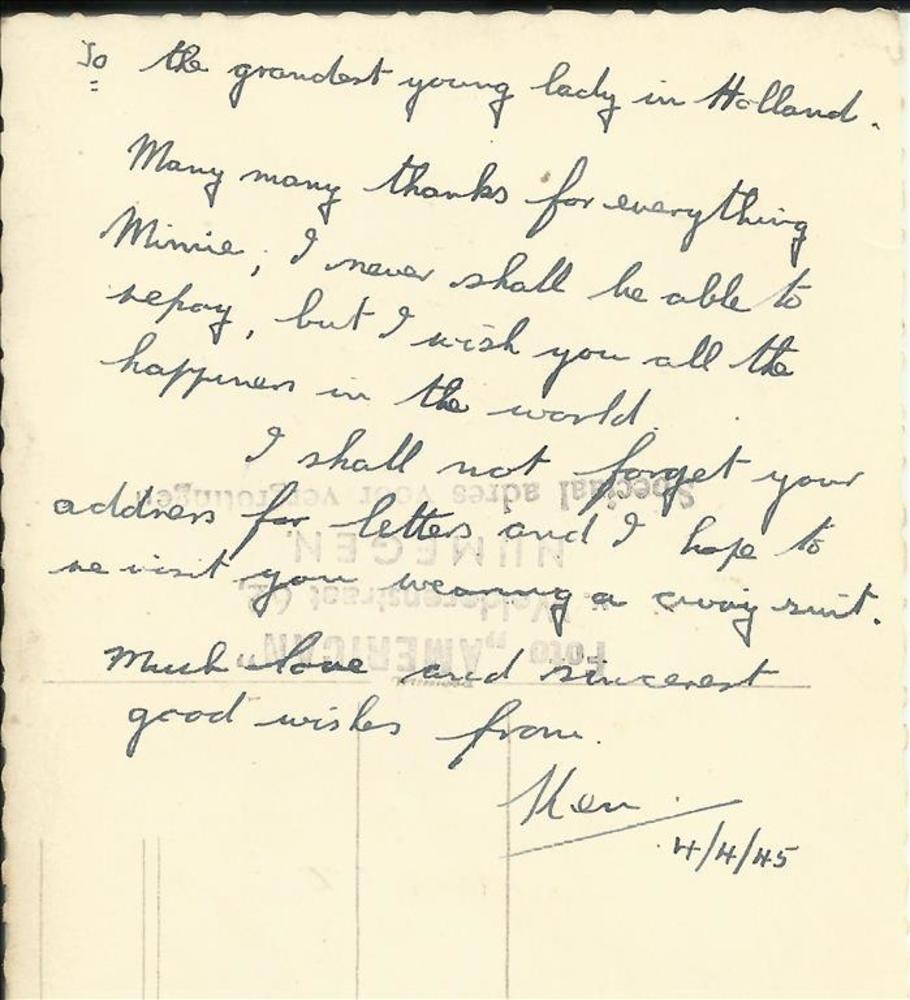 To the grandest young lady in Holland.
Many many thanks for everything
Minnie, I never shall be able to
repay, but I wish you all the
happiness in the world.
I shall not forget your
address for letters and I hope to
revisit you wearing a civvy suit.
Much love and sincerest
good wishes from.
Ken.
4/4/45
Foto „AMERICAN"
Welderenstraat
NIJMEGEN.
Speciaal adres voor vergrotingen